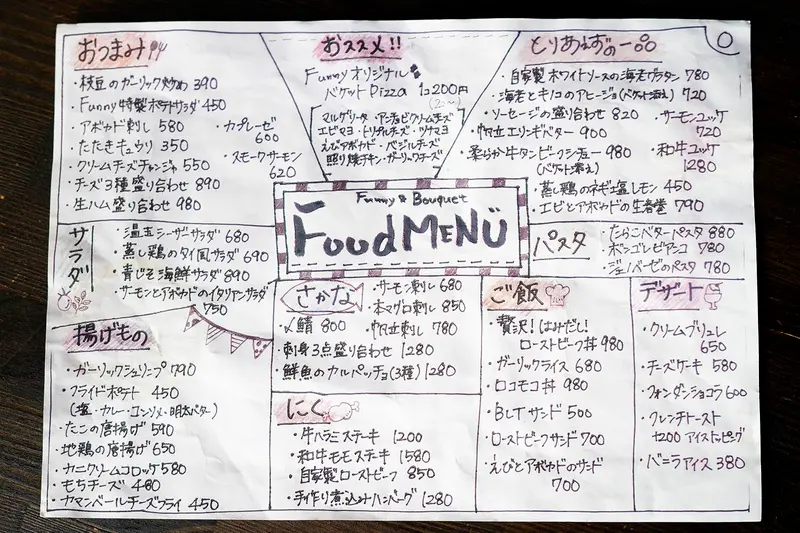 おつまみ
・枝豆のガーリック炒め 390
・Funny特製ポテトサラダ 450
・アボカド刺し 580
・たたきキュウリ 350
・クリームチーズチャンジャ 550
・チーズ3種盛り合わせ 890
・生ハム盛り合わせ 980
・カプレーゼ
600
・スモークサーモン
620
おススメ!!
Funnyオリジナル
バケットPizza 1コ200円
マルゲリータ・アンチョビクリームチーズ
エビマヨ・トリプルチーズ・ツナマヨ
えびアボカド・ベジルチーズ
照り焼チキン・ガーリックチーズ
とりあえずの一品
・自家製ホワイトソースの海老グラタン 780
・海老とキノコのアヒージョ(バケット添え) 720
・ソーセージの盛り合わせ 820
・帆立エリンギバター 900
・柔らか牛タンビーフシチュー 980
(バケット添え)
・サーモンユッケ
720
・和牛ユッケ
1280
・蒸し鶏のネギ塩レモン 450
・エビとアボカドの生春巻 790
Funny Bouquet
Food MENU
サラダ
・温玉シーザーサラダ 680
・蒸し鶏のタイ風サラダ 690
・青じそ海鮮サラダ 890
・サーモンとアボカドのイタリアンサラダ
750
パスタ
・たらこバターパスタ 880
・ボンゴレビアンコ 780
・ジェノバーゼのパスタ 780
さかな
・サーモン刺し 680
・本マグロ刺し 850
・〆鯖 800
・帆立刺し 780
・刺身3点盛り合わせ 1280
・鮮魚のカルパッチョ(3種) 1280
ご飯
・贅沢!はみだし!
ローストビーフ丼 980
・ガーリックライス 680
・ロコモコ丼 980
・BLTサンド 500
・ローストビーフサンド 700
・えびとアボカドのサンド
700
デザート
・クリームブリュレ
650
・チーズケーキ 580
・フォンダンショコラ 600
・フレンチトースト
+200 アイストッピング
・バニラアイス 380
揚げもの
・ガーリックシュリンプ 790
・フライドポテト 450
(塩・カレー・コンソメ・明太バター)
・たこの唐揚げ 590
・地鶏の唐揚げ 650
・カニクリームコロッケ 580
・もちチーズ 480
・カマンベールチーズフライ 450
にく
・牛ハラミステーキ 1200
・和牛モモステーキ 1580
・自家製ローストビーフ 850
・手作り煮込みハンバーグ 1280